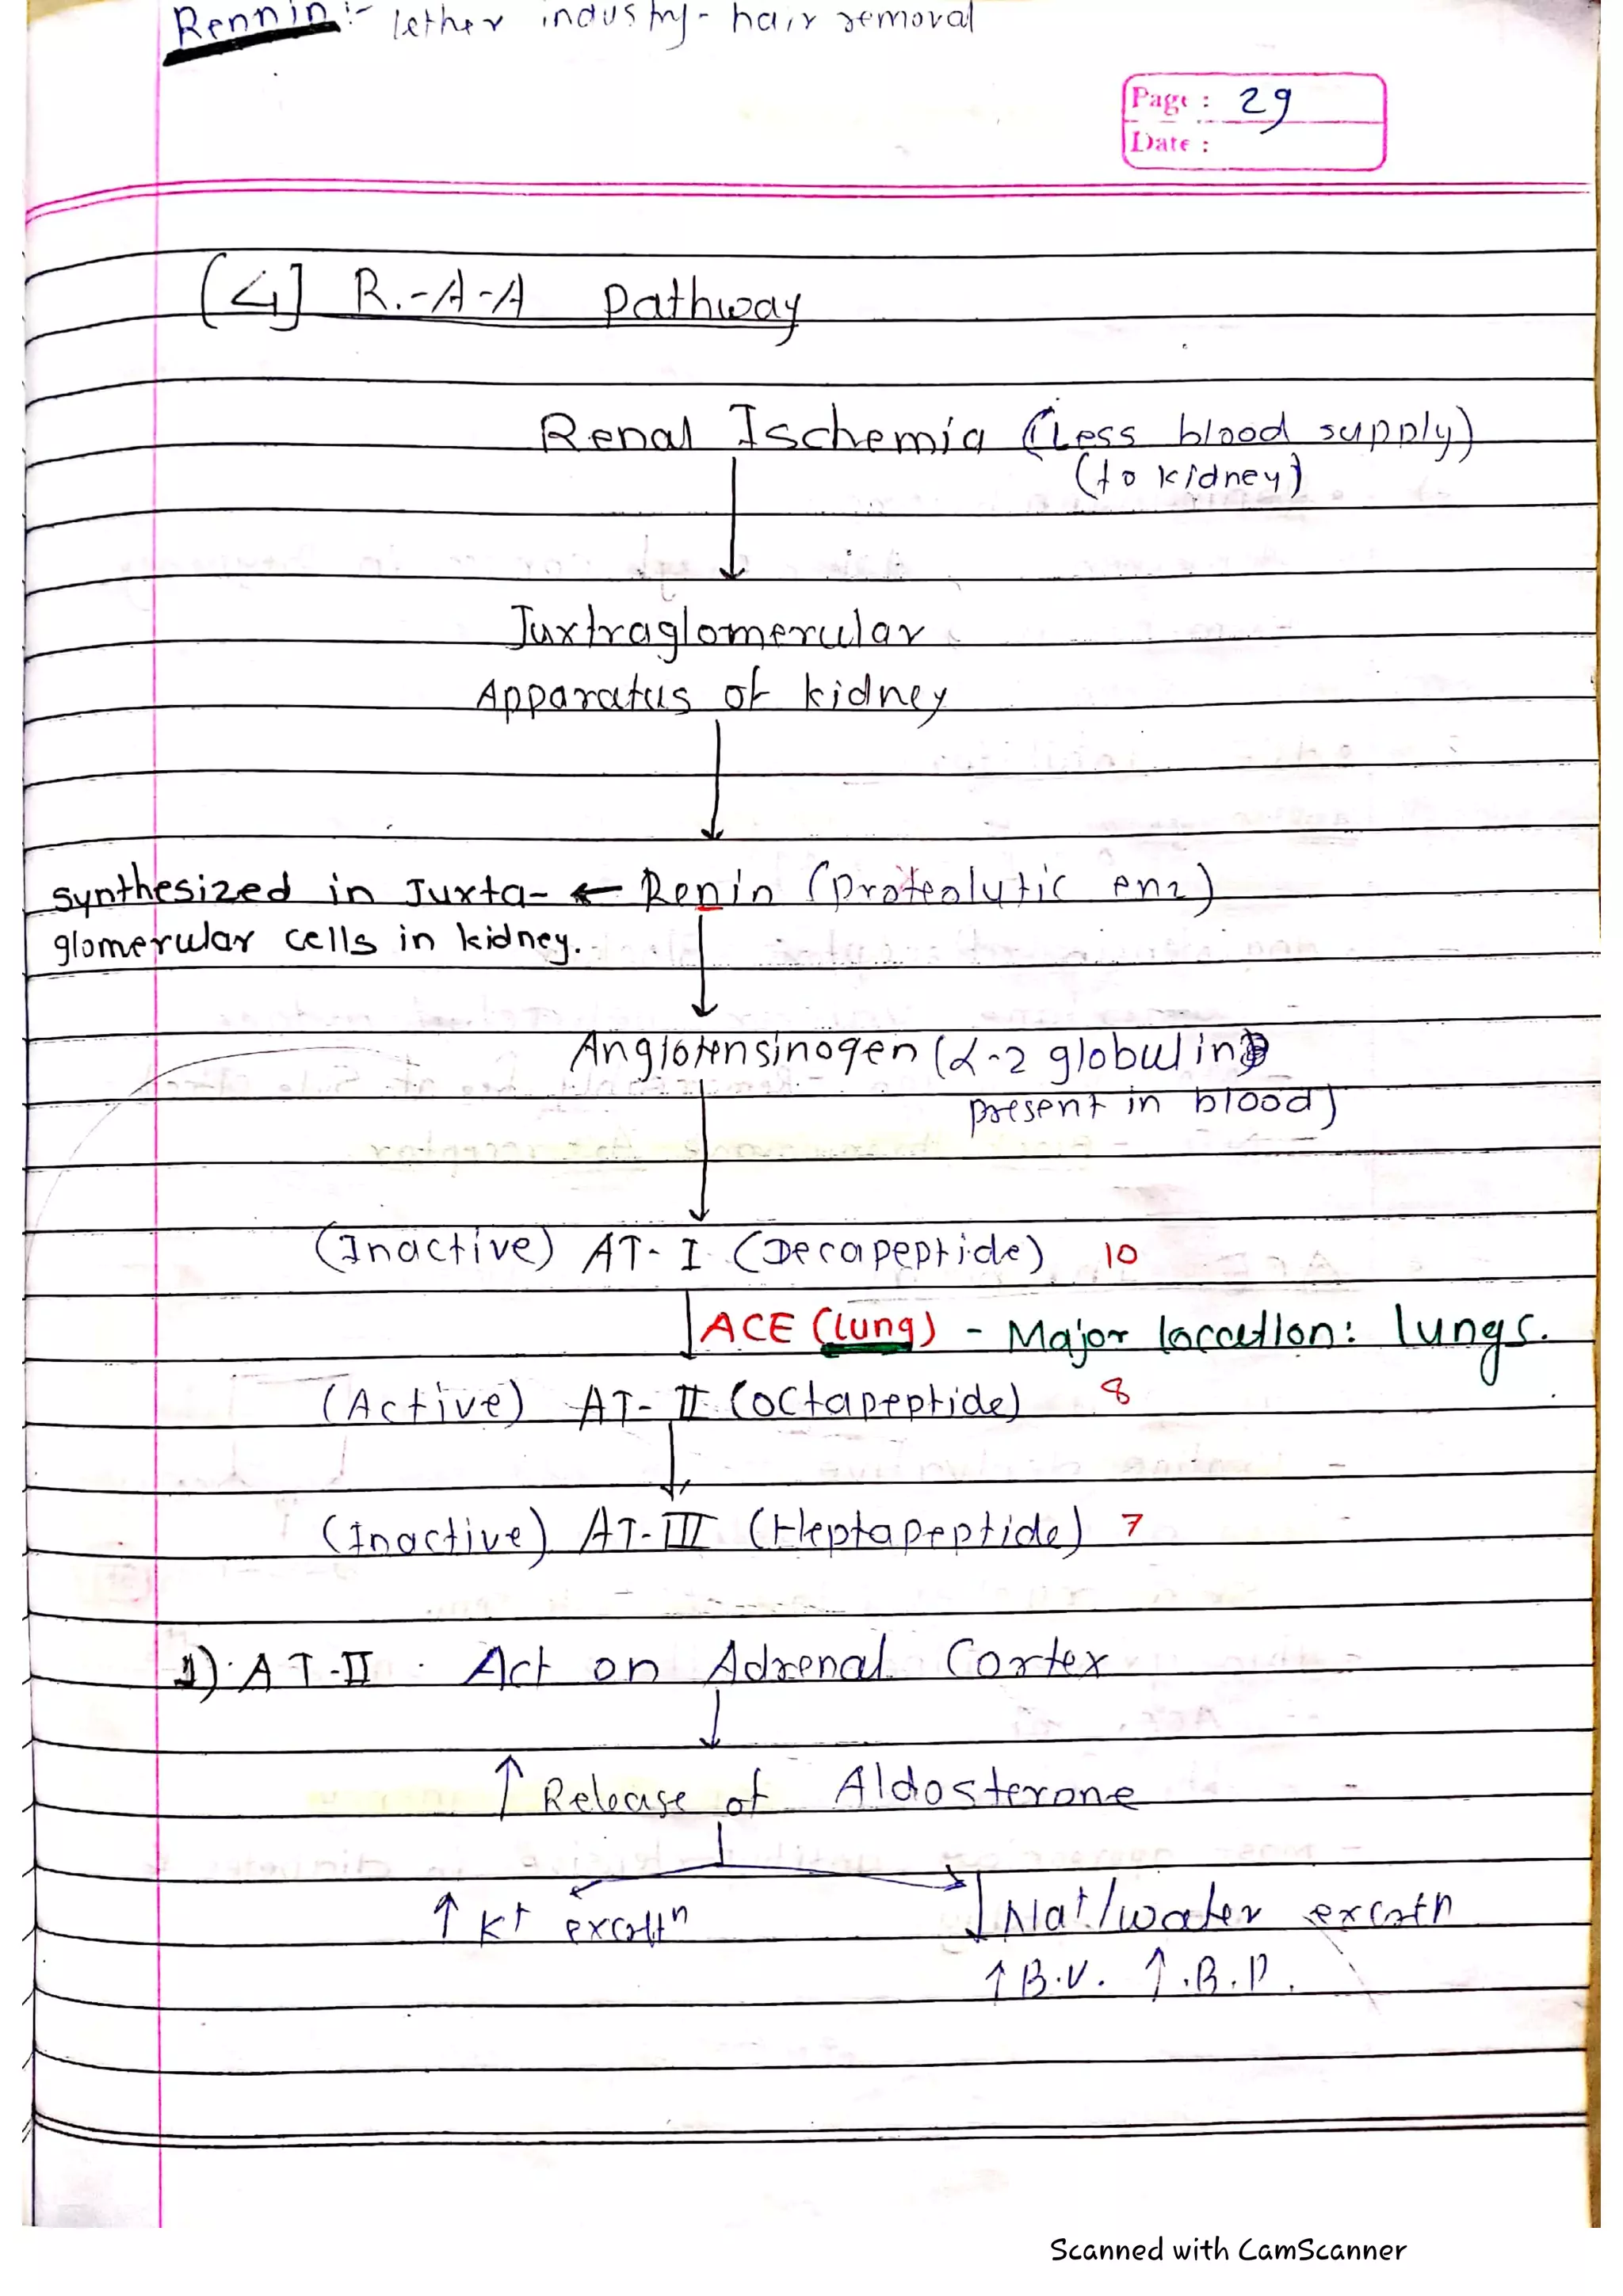 Rennin :- lether industry - hair removal
Page : 29
Date :
[4] R.-A-A Pathway
Renal Ischemia (Less blood supply)
(to kidney)
Juxtraglomerular
Apparatus of kidney
synthesized in Juxta- ← Renin (Proteolytic enz)
glomerular cells in kidney.
Angiotensinogen (α-2 globulin
present in blood)
(Inactive) AT-I (Decapeptide) 10
ACE (Lung) - Major location: lungs.
(Active) AT-II (octapeptide) 8
(Inactive) AT-III (Heptapeptide) 7
1) AT-II Act on Adrenal Cortex
↑ Release of Aldosterone
↑ K+ excretn ↓ Na+/water excretn
↑ B.V. ↑ B.P.
Scanned with CamScanner